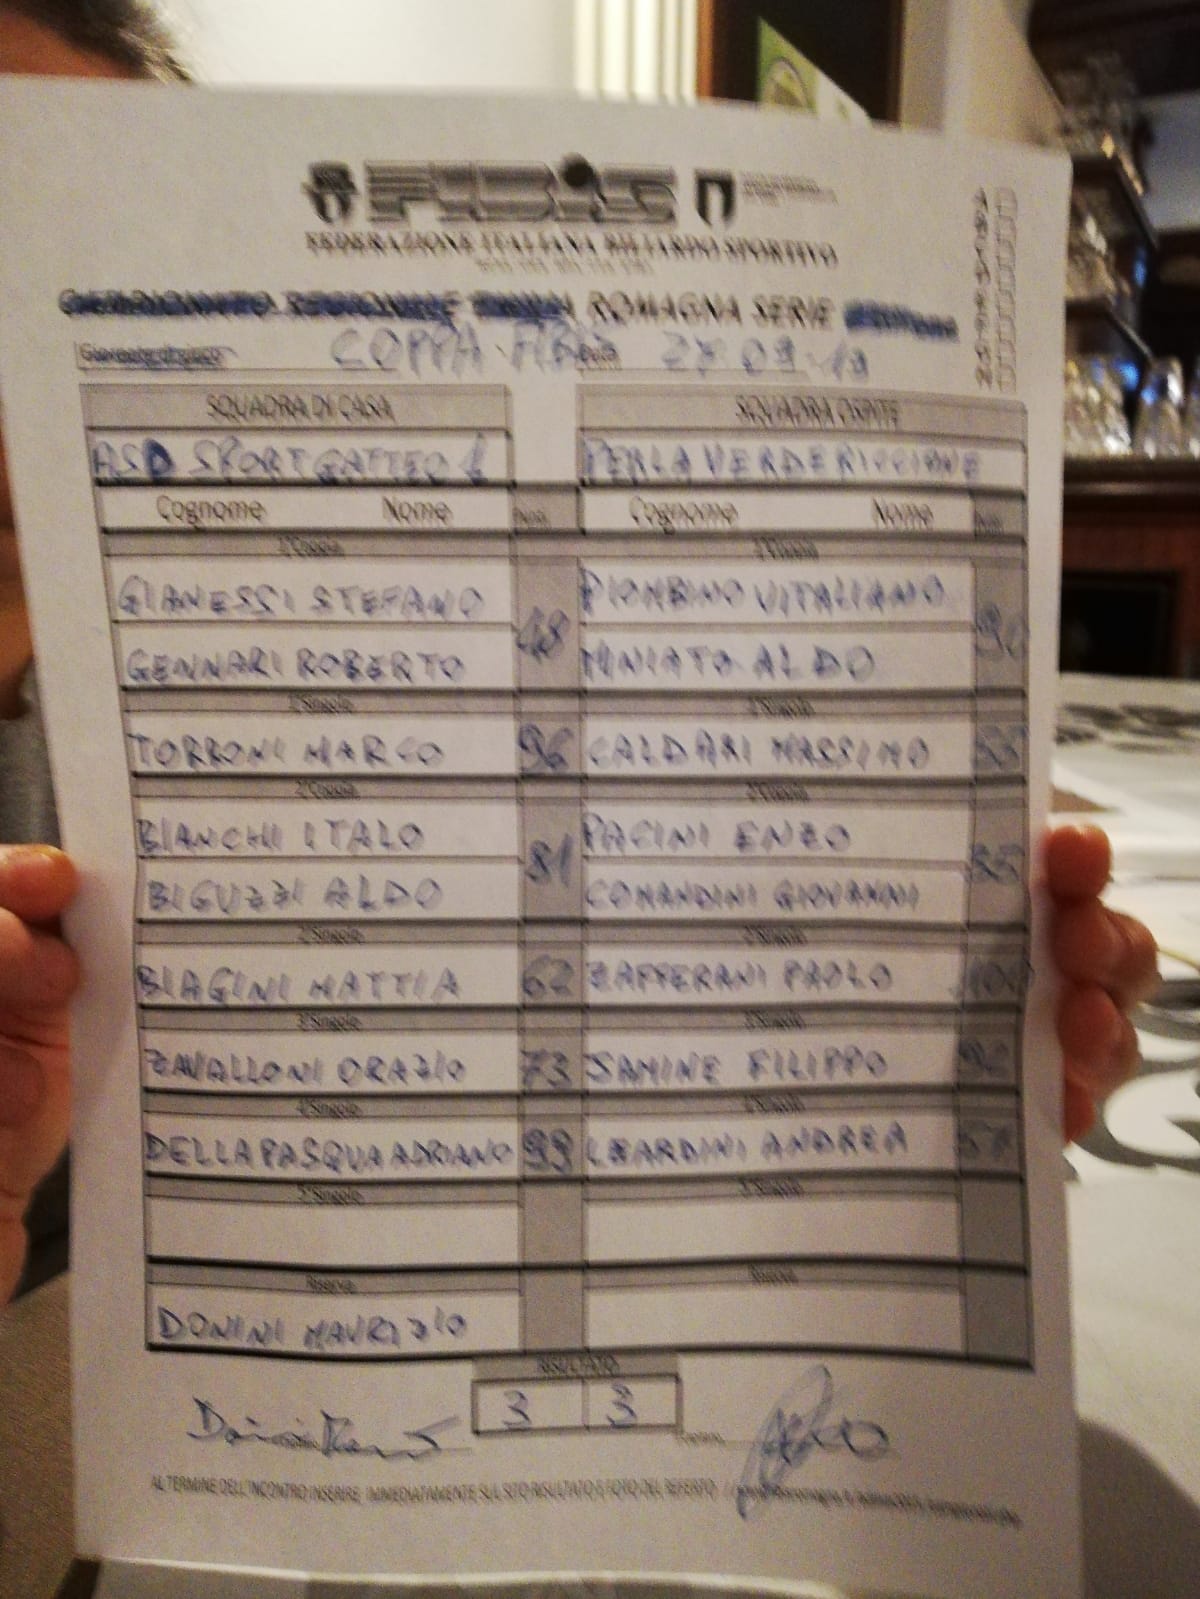 FIBiS
FEDERAZIONE ITALIANA BILIARDO SPORTIVO
ROMAGNA SERIE
COPPA FIBIS Data 27 09 19
SQUADRA DI CASA SQUADRA OSPITE
ASD SPORT GATTEO 1 PERLA VERDE RICCIONE
Cognome Nome Punti Cognome Nome Punti
1°Coppia 1°Coppia
GIANESSI STEFANO 48 PIOMBINO VITALIANO 90
GENNARI ROBERTO MINIATO ALDO
1°Singolo 1°Singolo
TORRONI MARCO 96 CALDARI MASSIMO
2°Coppia 2°Coppia
BIANCHI ITALO 81 PACINI ENZO
BIGUZZI ALDO COMANDINI GIOVANNI
2°Singolo 2°Singolo
BIAGINI MATTIA 62 ZAFFERANI PAOLO 100
3°Singolo 3°Singolo
ZAVALLONI ORAZIO 73 SAMINE FILIPPO 92
4°Singolo 4°Singolo
DELLAPASQUA ADRIANO 99 LEARDINI ANDREA 57
5°Singolo 5°Singolo
Riserva Riserva
DONINI MAURIZIO
RISULTATO
3 3
AL TERMINE DELL'INCONTRO INSERIRE IMMEDIATAMENTE SUL SITO RISULTATO E FOTO DEL REFERTO